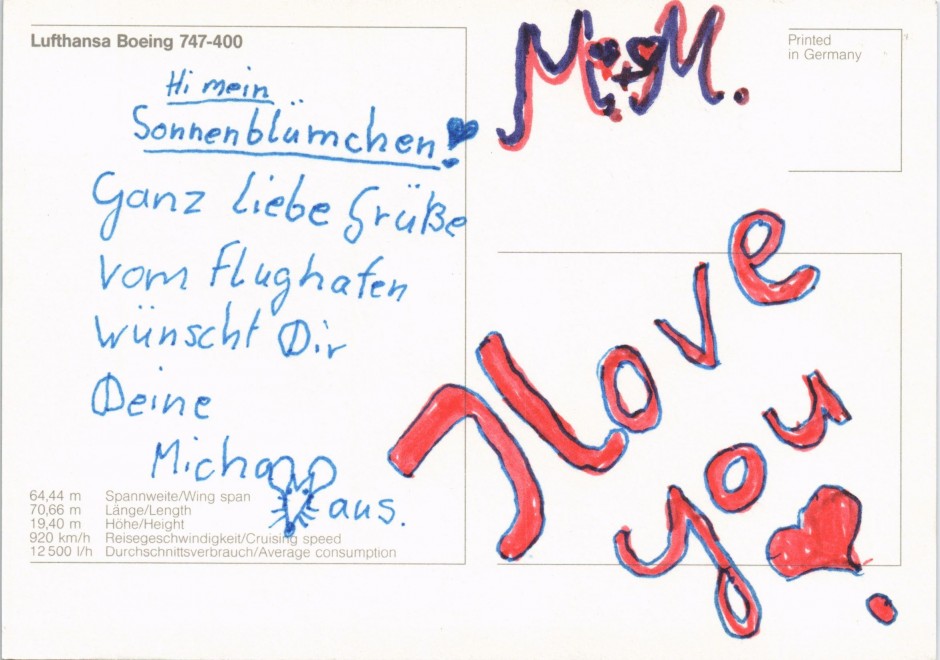 Lufthansa Boeing 747-400
Hi mein
Sonnenblümchen!
Ganz liebe Grüße
vom Flughafen
wünscht Dir
Deine
Micha
Maus.
64,44 m Spannweite/Wing span
70,66 m Länge/Length
19,40 m Höhe/Height
920 km/h Reisegeschwindigkeit/Cruising speed
12 500 l/h Durchschnittsverbrauch/Average consumption
M + M.
Printed
in Germany
I love
you.